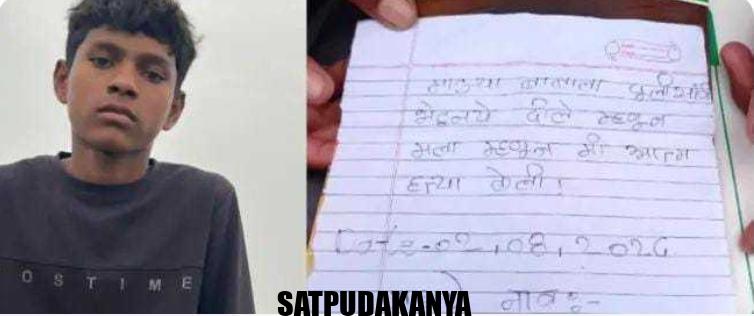 OSTIME
माझ्या बाबाला पुलीसांनी
भेटनये दीले म्हणून
मला म्हणून मी आत्म
हत्या केली!
Date-02,08,2026
नाव:-
SATPUDAKANYA